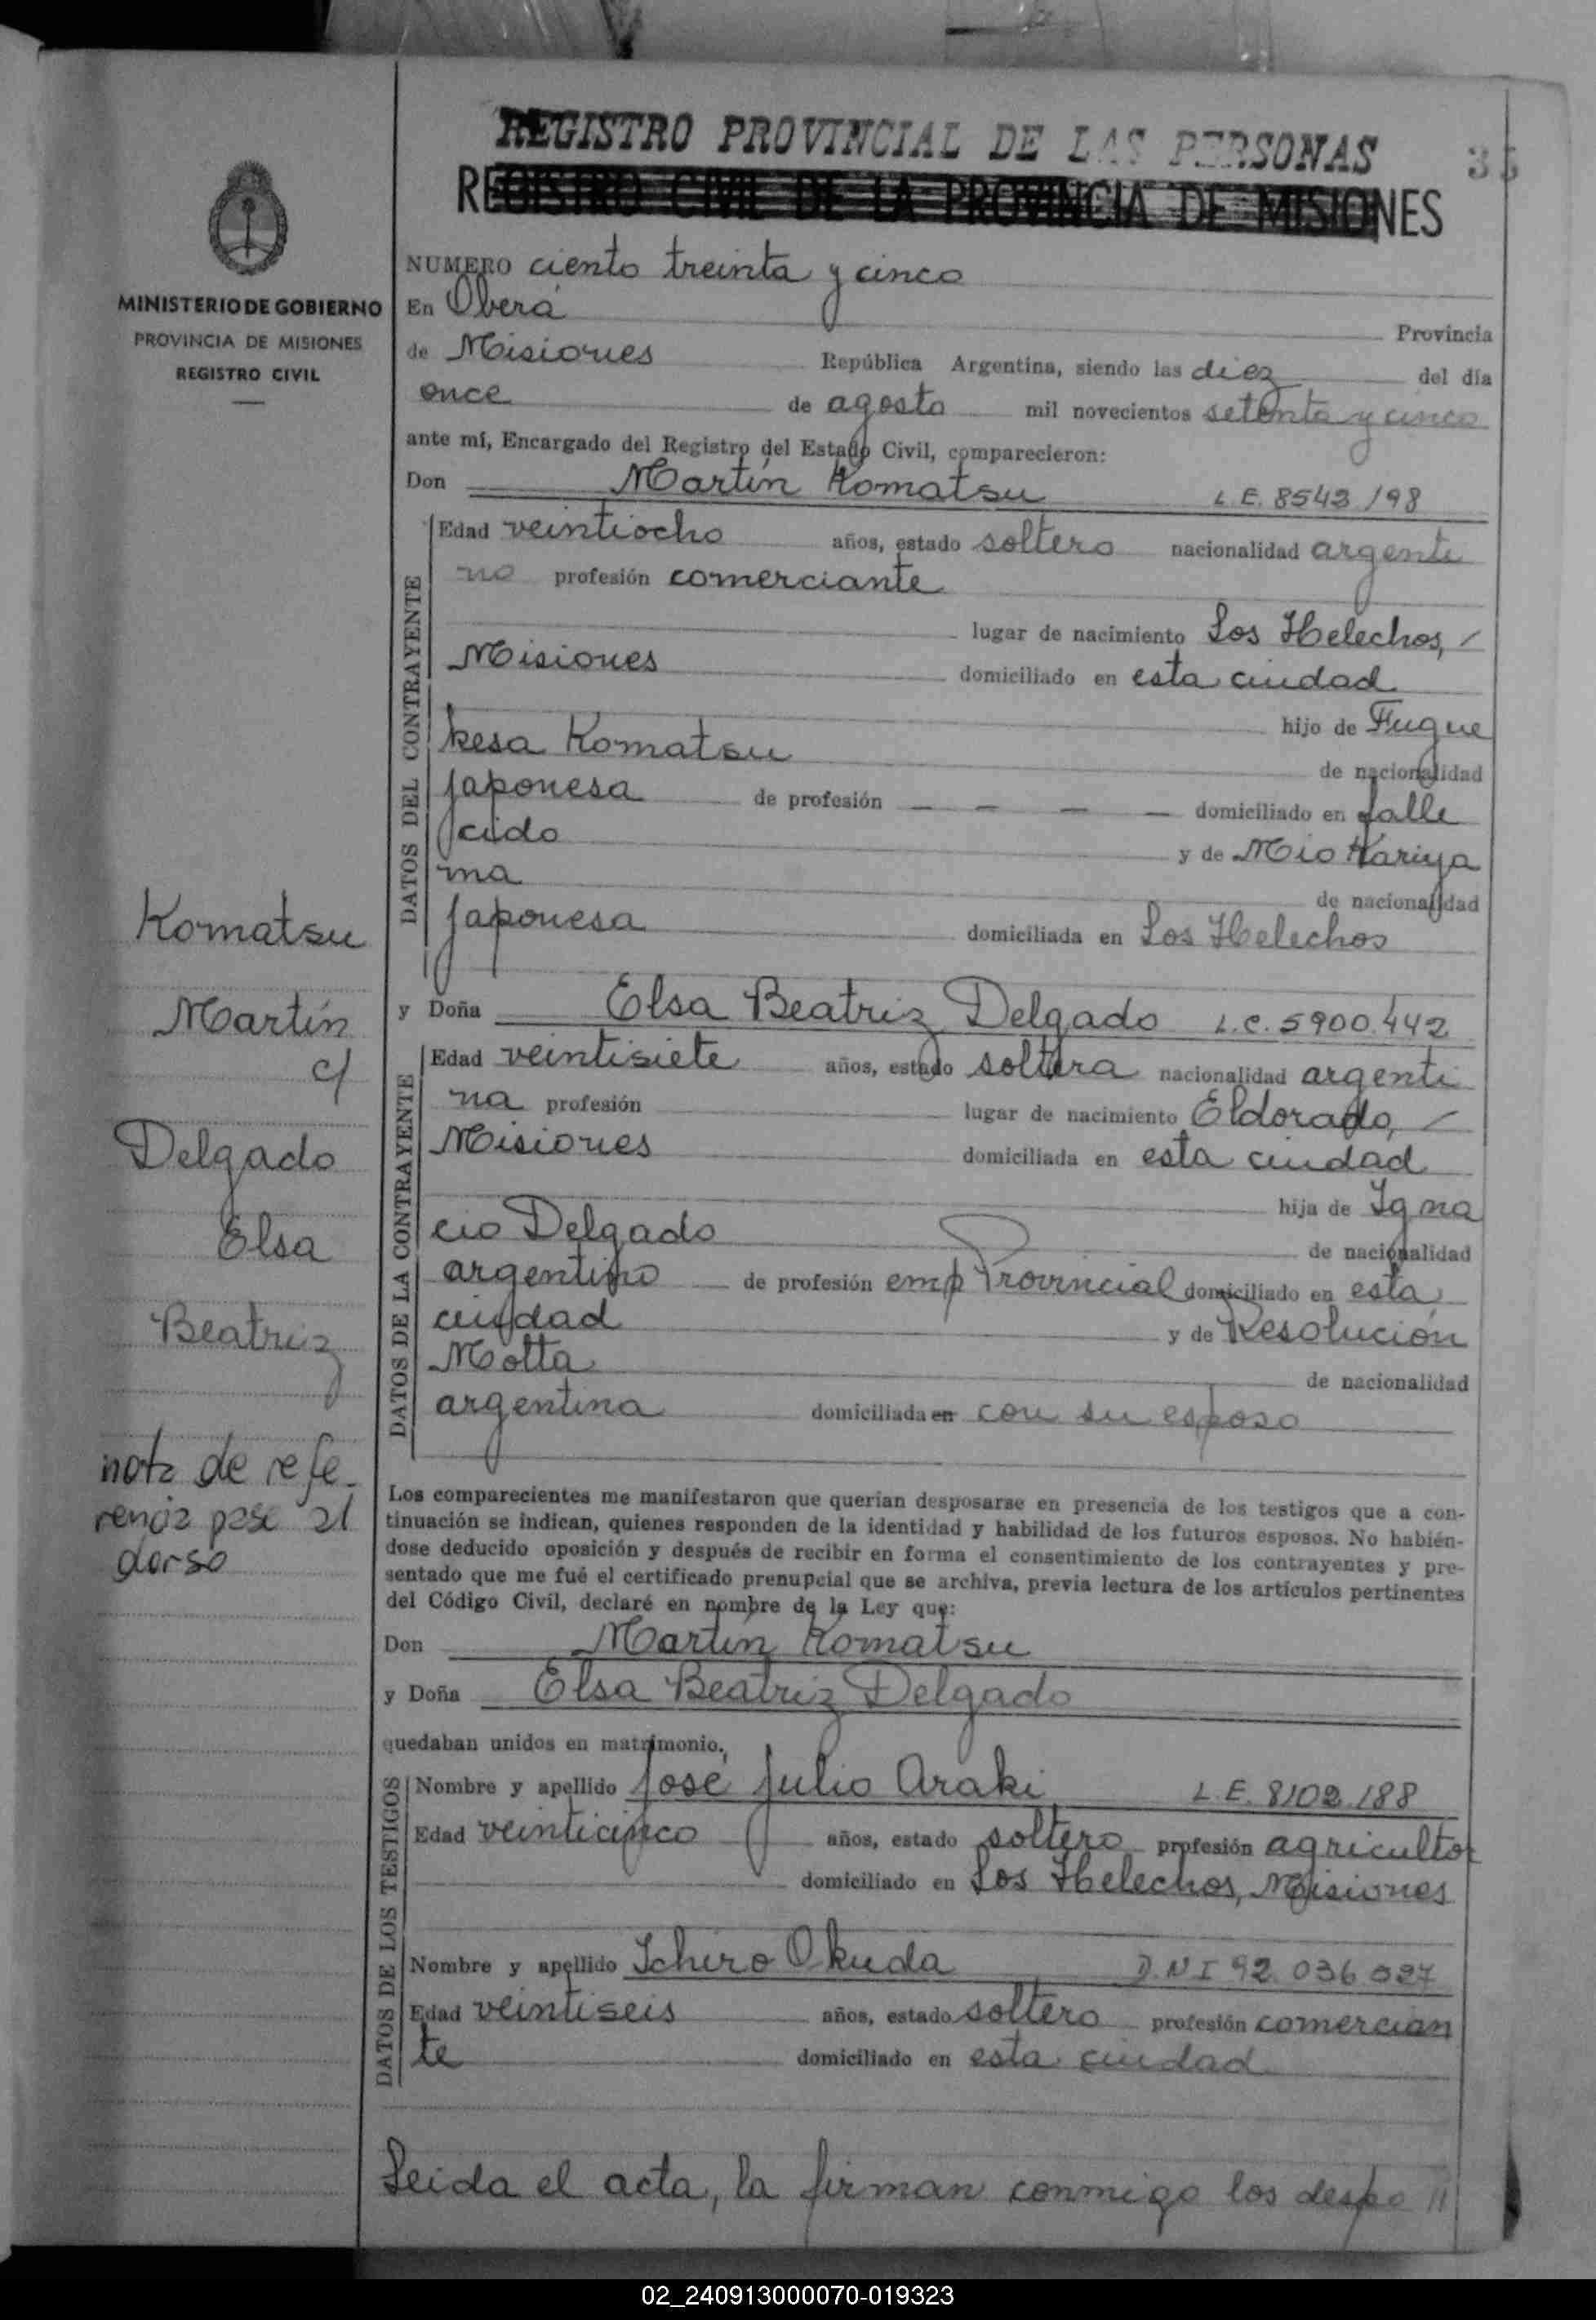 REGISTRO PROVINCIAL DE LAS PERSONAS
35
REGISTRO CIVIL DE LA PROVINCIA DE MISIONES
MINISTERIO DE GOBIERNO
PROVINCIA DE MISIONES
REGISTRO CIVIL
NUMERO ciento treinta y cinco
En Oberá Provincia
de Misiones República Argentina, siendo las diez del día
once de agosto mil novecientos setenta y cinco
ante mí, Encargado del Registro del Estado Civil, comparecieron:
Don Martín Komatsu L.E. 8543198
DATOS DEL CONTRAYENTE
Edad veintiocho años, estado soltero nacionalidad argenti
no profesión comerciante
lugar de nacimiento Los Helechos, /
Misiones domiciliado en esta ciudad
hijo de Fugue
kesa Komatsu de nacionalidad
japonesa de profesión — — — — domiciliado en falle
cido y de Mio Kariya
ma de nacionalidad
japonesa domiciliada en Los Helechos
y Doña Elsa Beatriz Delgado L.C. 5900.442
DATOS DE LA CONTRAYENTE
Edad veintisiete años, estado soltera nacionalidad argenti
na profesión lugar de nacimiento Eldorado, /
Misiones domiciliada en esta ciudad
hija de Igna
cio Delgado de nacionalidad
argentino de profesión emp Provincial domiciliado en esta
ciudad y de Resolución
Motta de nacionalidad
argentina domiciliada en con su esposo
Komatsu
Martín
c/
Delgado
Elsa
Beatriz
nota de refe-
rencia pase al
dorso
Los comparecientes me manifestaron que querían desposarse en presencia de los testigos que a con-
tinuación se indican, quienes responden de la identidad y habilidad de los futuros esposos. No habién-
dose deducido oposición y después de recibir en forma el consentimiento de los contrayentes y pre-
sentado que me fué el certificado prenupcial que se archiva, previa lectura de los artículos pertinentes
del Código Civil, declaré en nombre de la Ley que:
Don Martín Komatsu
y Doña Elsa Beatriz Delgado
quedaban unidos en matrimonio.
DATOS DE LOS TESTIGOS
Nombre y apellido José Julio Araki L.E. 8102.188
Edad veinticinco años, estado soltero profesión agricultor
domiciliado en Los Helechos, Misiones
Nombre y apellido Ichiro Okuda D.N.I 92.036.027
Edad veintiseis años, estado soltero profesión comercian
te domiciliado en esta ciudad
Leida el acta, la firman conmigo los despo //
02_240913000070-019323